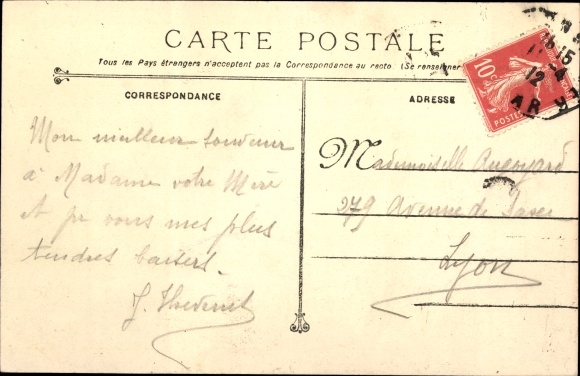 CARTE POSTALE
Tous les Pays étrangers n'acceptent pas la Correspondance au recto (Se renseigner
CORRESPONDANCE
ADRESSE
10c
POSTES
15
12
Mon meilleur souvenir
à Madame votre Mère
et pr vous mes plus
tendres baisers.
J.
Mademoiselle
279 Avenue de Saxe
Lyon